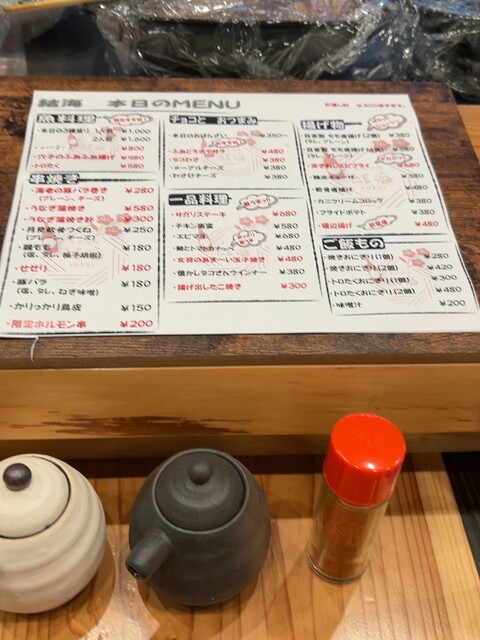 結海 本日のMENU
魚料理
・本日の3種盛り 1人前 ¥1,000
2人前 ¥1,600
¥800
・穴子のふあふあ揚げ ¥980
・トロたく ¥580
串焼き
・海老の豚バラ巻き ¥280
(プレーン、チーズ)
・うなぎ蒲焼き ¥580
・うなぎ蒲焼き肝 ¥300
・月見軟骨つくね ¥250
(プレーン、チーズ)
・鶏もも ¥180
(塩、タレ、柚子胡椒)
・せせり ¥180
・豚バラ ¥180
(塩、タレ、ねぎ味噌)
・かりっかり鳥皮 ¥150
・限定ホルモン串 ¥200
チョコと おつまみ
・本日のおばんざい ¥350〜
¥480
¥380
・メープルチーズ ¥380
・わさびチーズ ¥380
一品料理
・サガリステーキ ¥680
・チキン南蛮 ¥580
・エビマヨ ¥680
¥480
・女将のあま〜い玉子焼き ¥480
・懐かしタコさんウインナー ¥380
・揚げ出したこ焼き ¥300
揚げ物
¥380
¥480
¥380
・軟骨唐揚げ ¥380
・カニクリームコロッケ ¥380
・フライドポテト ¥380
・磯辺揚げ ¥480
ご飯もの
・焼きおにぎり(1個) ¥280
・焼きおにぎり(2個) ¥420
・トロたくおにぎり(1個) ¥300
・トロたくおにぎり(2個) ¥480
・味噌汁 ¥200